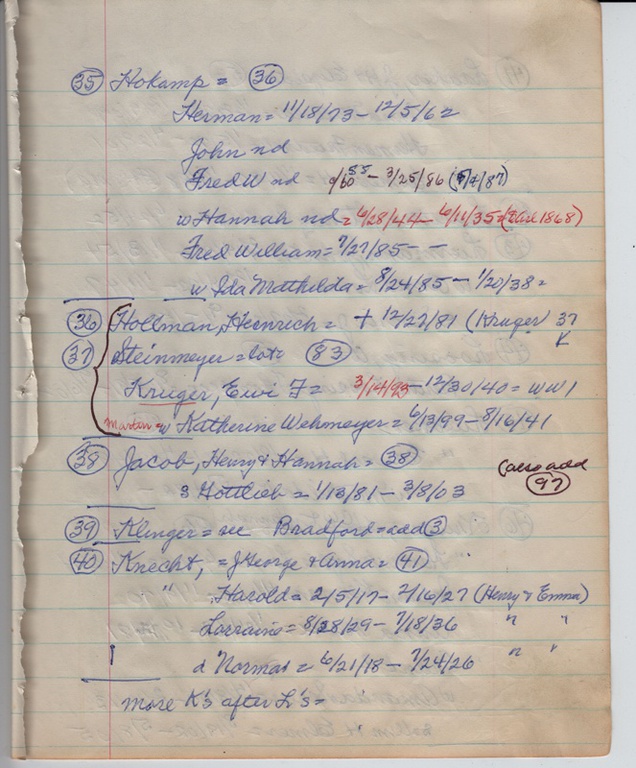 35 Hokamp = 36
Herman = 11/18/73 - 12/5/62
John nd
Fred W nd = 9/60 55 - 3/25/86 (5/4/87)
w Hannah nd = 6/28/44 - 6/11/35 1868)
Fred William = 7/27/85 - -
w Ida Matthilda = 8/24/85 - 1/20/38 =
36 Hollman, Heinrich = + 12/27/81 (Kruger 37
37 Steinmeyer = lots 83 K
Kruger, Ewi F = 3/14/93 - 12/30/40 = WW1
w Katherine Wehmeyer = 6/13/99 - 8/16/41
38 Jacob, Henry & Hannah = 38 (also add
s Gottlieb = 1/13/81 - 3/8/03 97
39 Klinger = see Bradford = add 3
40 Knecht, = J George & Anna = 41
" Harold = 2/5/17 - 2/16/27 (Henry & Emma)
Lorraine = 8/28/29 - 7/18/36 " "
d Norma = 6/21/18 - 7/24/26 " "
more K's after L's =